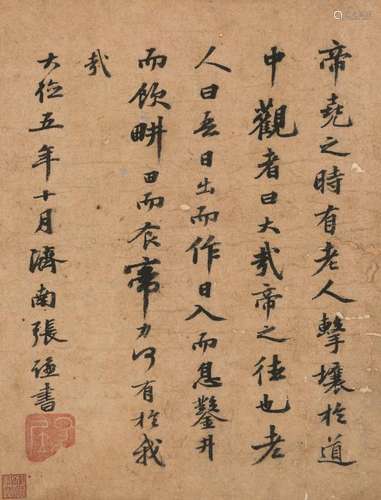 帝堯之時有老人擊壤於道
中觀者曰大哉帝之德也老
人曰吾日出而作日入而息鑿井
而飲畊田而食帝力何有於我
哉
大德五年十月濟南張 書